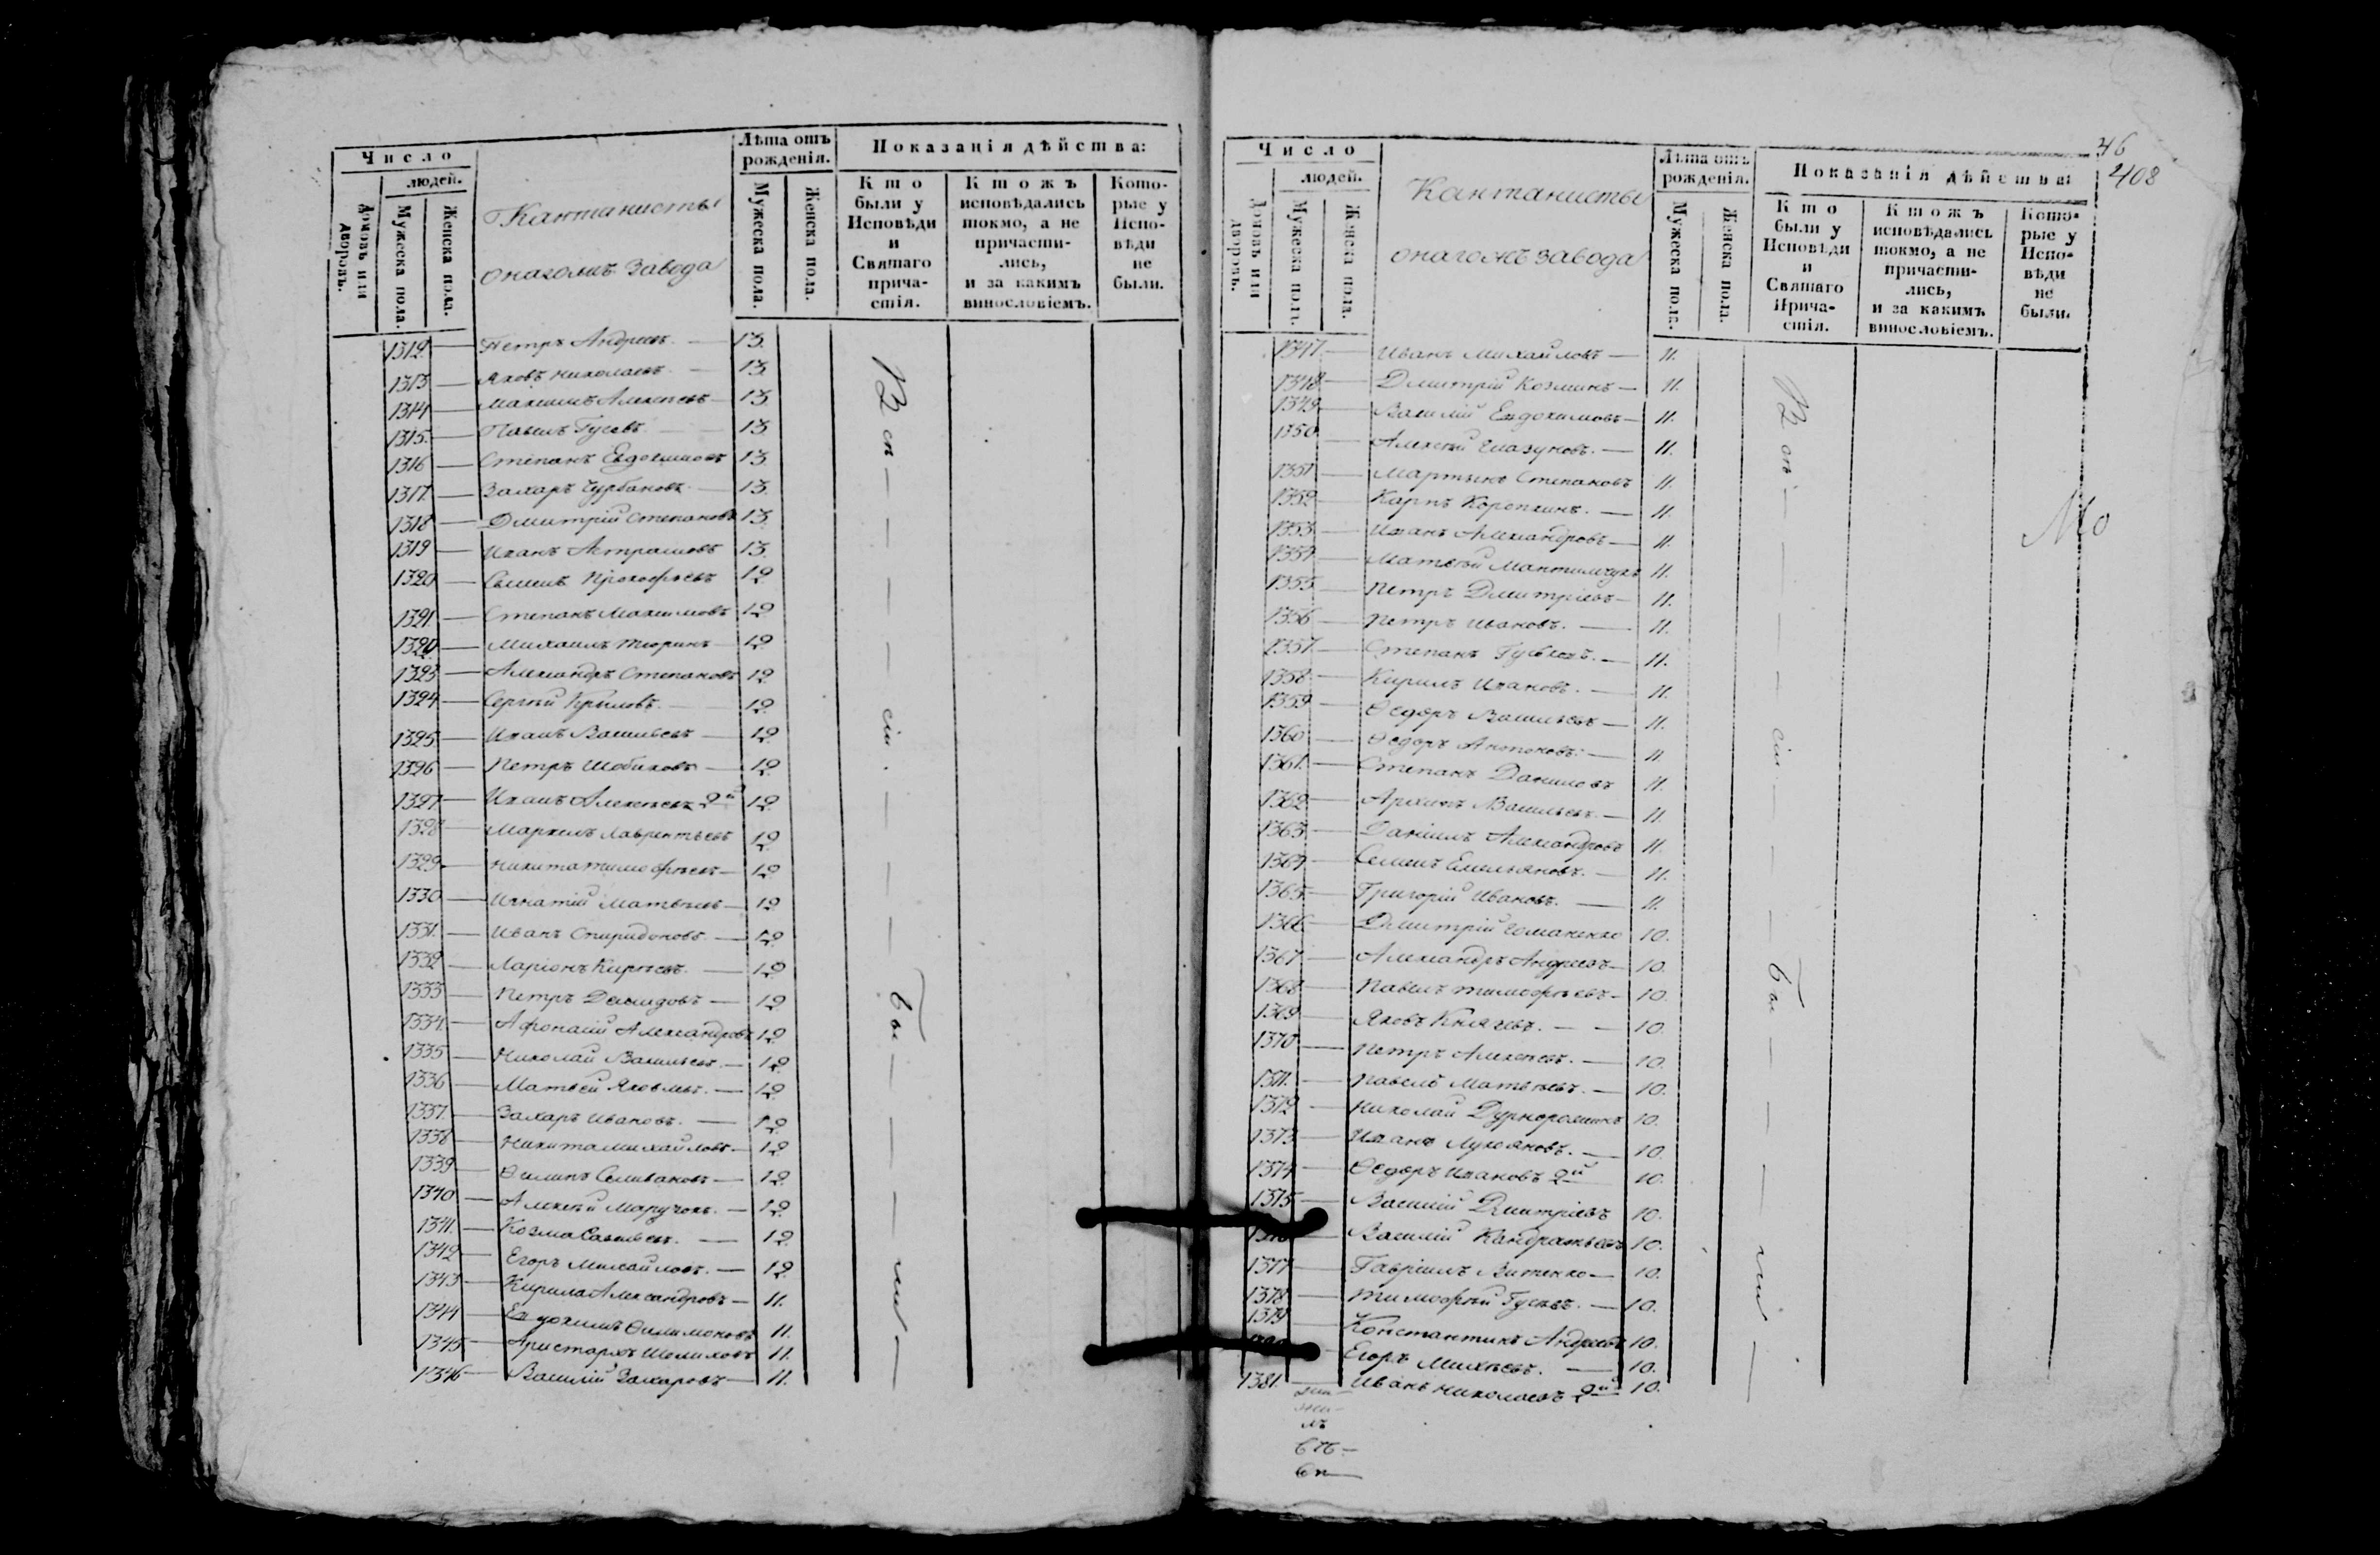 Число
людей.
Домовъ или дворовъ.
Мужеска пола.
Женска пола.
Кантанисты
онагожъ завода
Лѣта отъ рожденія.
Мужеска пола.
Женска пола.
Показанія дѣйства:
Кто были у Исповѣди и Святаго причастія.
Ктожъ исповѣдались токмо, а не причастились, и за какимъ винословіемъ.
Которые у Исповѣди не были.
1312 — Петръ Андреевъ — 13.
1313 — Яковъ Николаевъ — 13
1314 — Максимъ Алексѣевъ — 13
1315 — Павелъ Гусевъ — 13
1316 — Степанъ Евдокимовъ 13
1317 — Захаръ Чурбановъ — 13.
1318 — Дмитрій Степановъ 13.
1319 — Иванъ 13.
1320 — Семенъ Прокофьевъ 12
1321 — Степанъ Максимовъ 12
1322 — Михаилъ Тюринъ 12
1323 — Александръ Степановъ 12
1324 — Сергѣй Крыловъ — 12
1325 — Иванъ Васильевъ — 12
1326 — Петръ — 12
1327 — Иванъ Алексѣевъ 2й 12
1328 — Маркелъ Лаврентьевъ 12
1329 — Никита Тимофѣевъ — 12
1330 — Игнатій Матвѣевъ — 12
1331 — Иванъ Спиридоновъ — 12
1332 — Ларіонъ Кирѣевъ — 12
1333 — Петръ Давыдовъ — 12
1334 — Афонасій Александровъ 12
1335 — Николай Васильевъ — 12
1336 — Матвей Яковлевъ. — 12
1337 — Захаръ Ивановъ. — 12
1338 — Никита Михайловъ — 12
1339 — Селивановъ — 12
1340 — Алексѣй — 12
1341 — Козма Савельевъ. — 12
1342 — Егоръ Михайловъ. — 12
1343 — Кирила Александровъ — 11.
1344 — Евдокимъ Филимоновъ 11.
1345 — Аристархъ Шелиховъ 11.
1346 — Василій Захаровъ — 11.
Всѣ — сіи — бы — ли
46
408
Число
людей.
Домовъ или дворовъ.
Мужеска пола.
Женска пола.
Кантанисты
онагожъ завода
Лѣта отъ рожденія.
Мужеска пола.
Женска пола.
Показанія дѣйства:
Кто были у Исповѣди и Святаго Причастія.
Ктожъ исповѣдались токмо, а не причастились, и за какимъ винословіемъ.
Которые у Исповѣди не были.
1347 — Иванъ Михайловъ — 11.
1348 — Дмитрій Козминъ — 11.
1349 — Василій Евдокимовъ — 11.
1350 — Алексѣй Глазуновъ. — 11.
1351 — Мартынъ Степановъ 11.
1352 — Карпъ — 11.
1353 — Иванъ Александровъ — 11.
1354 — Матвѣй 11.
1355 — Петръ Дмитріевъ — 11.
1356 — Петръ Ивановъ. — 11.
1357 — Степанъ — 11.
1358 — Кирилъ Ивановъ. — 11.
1359 — Ѳедоръ Васильевъ — 11.
1360 — Ѳедоръ Антоновъ. — 11
1361 — Степанъ Даниловъ 11.
1362 — Архипъ Васильевъ. — 11.
1363 — Даніилъ Александровъ 11.
1364 — Семенъ Емельяновъ. — 11.
1365 — Григорій Ивановъ. — 11.
1366 — Дмитрій 10.
1367 — Александръ Андреевъ — 10.
1368 — Павелъ Тимофѣевъ — 10.
1369 — Яковъ Князевъ. — 10.
1370 — Петръ Алексѣевъ. — 10.
1371 — Павелъ Матвѣевъ. — 10.
1372 — Николай 10.
1373 — Иванъ Лукояновъ. — 10.
1374 — Ѳедоръ Ивановъ 2й 10.
1375 — Василій Дмитріевъ 10.
Василій Кандратьевъ 10.
1377 — Гавріилъ Витенко — 10.
1378 — Тимофѣй Гусевъ. — 10.
1379 Константинъ Андреевъ 10.
Егоръ Михѣевъ. — 10.
1381 — Иванъ Николаевъ 2й 10.
Всѣ — сіи — бы — ли